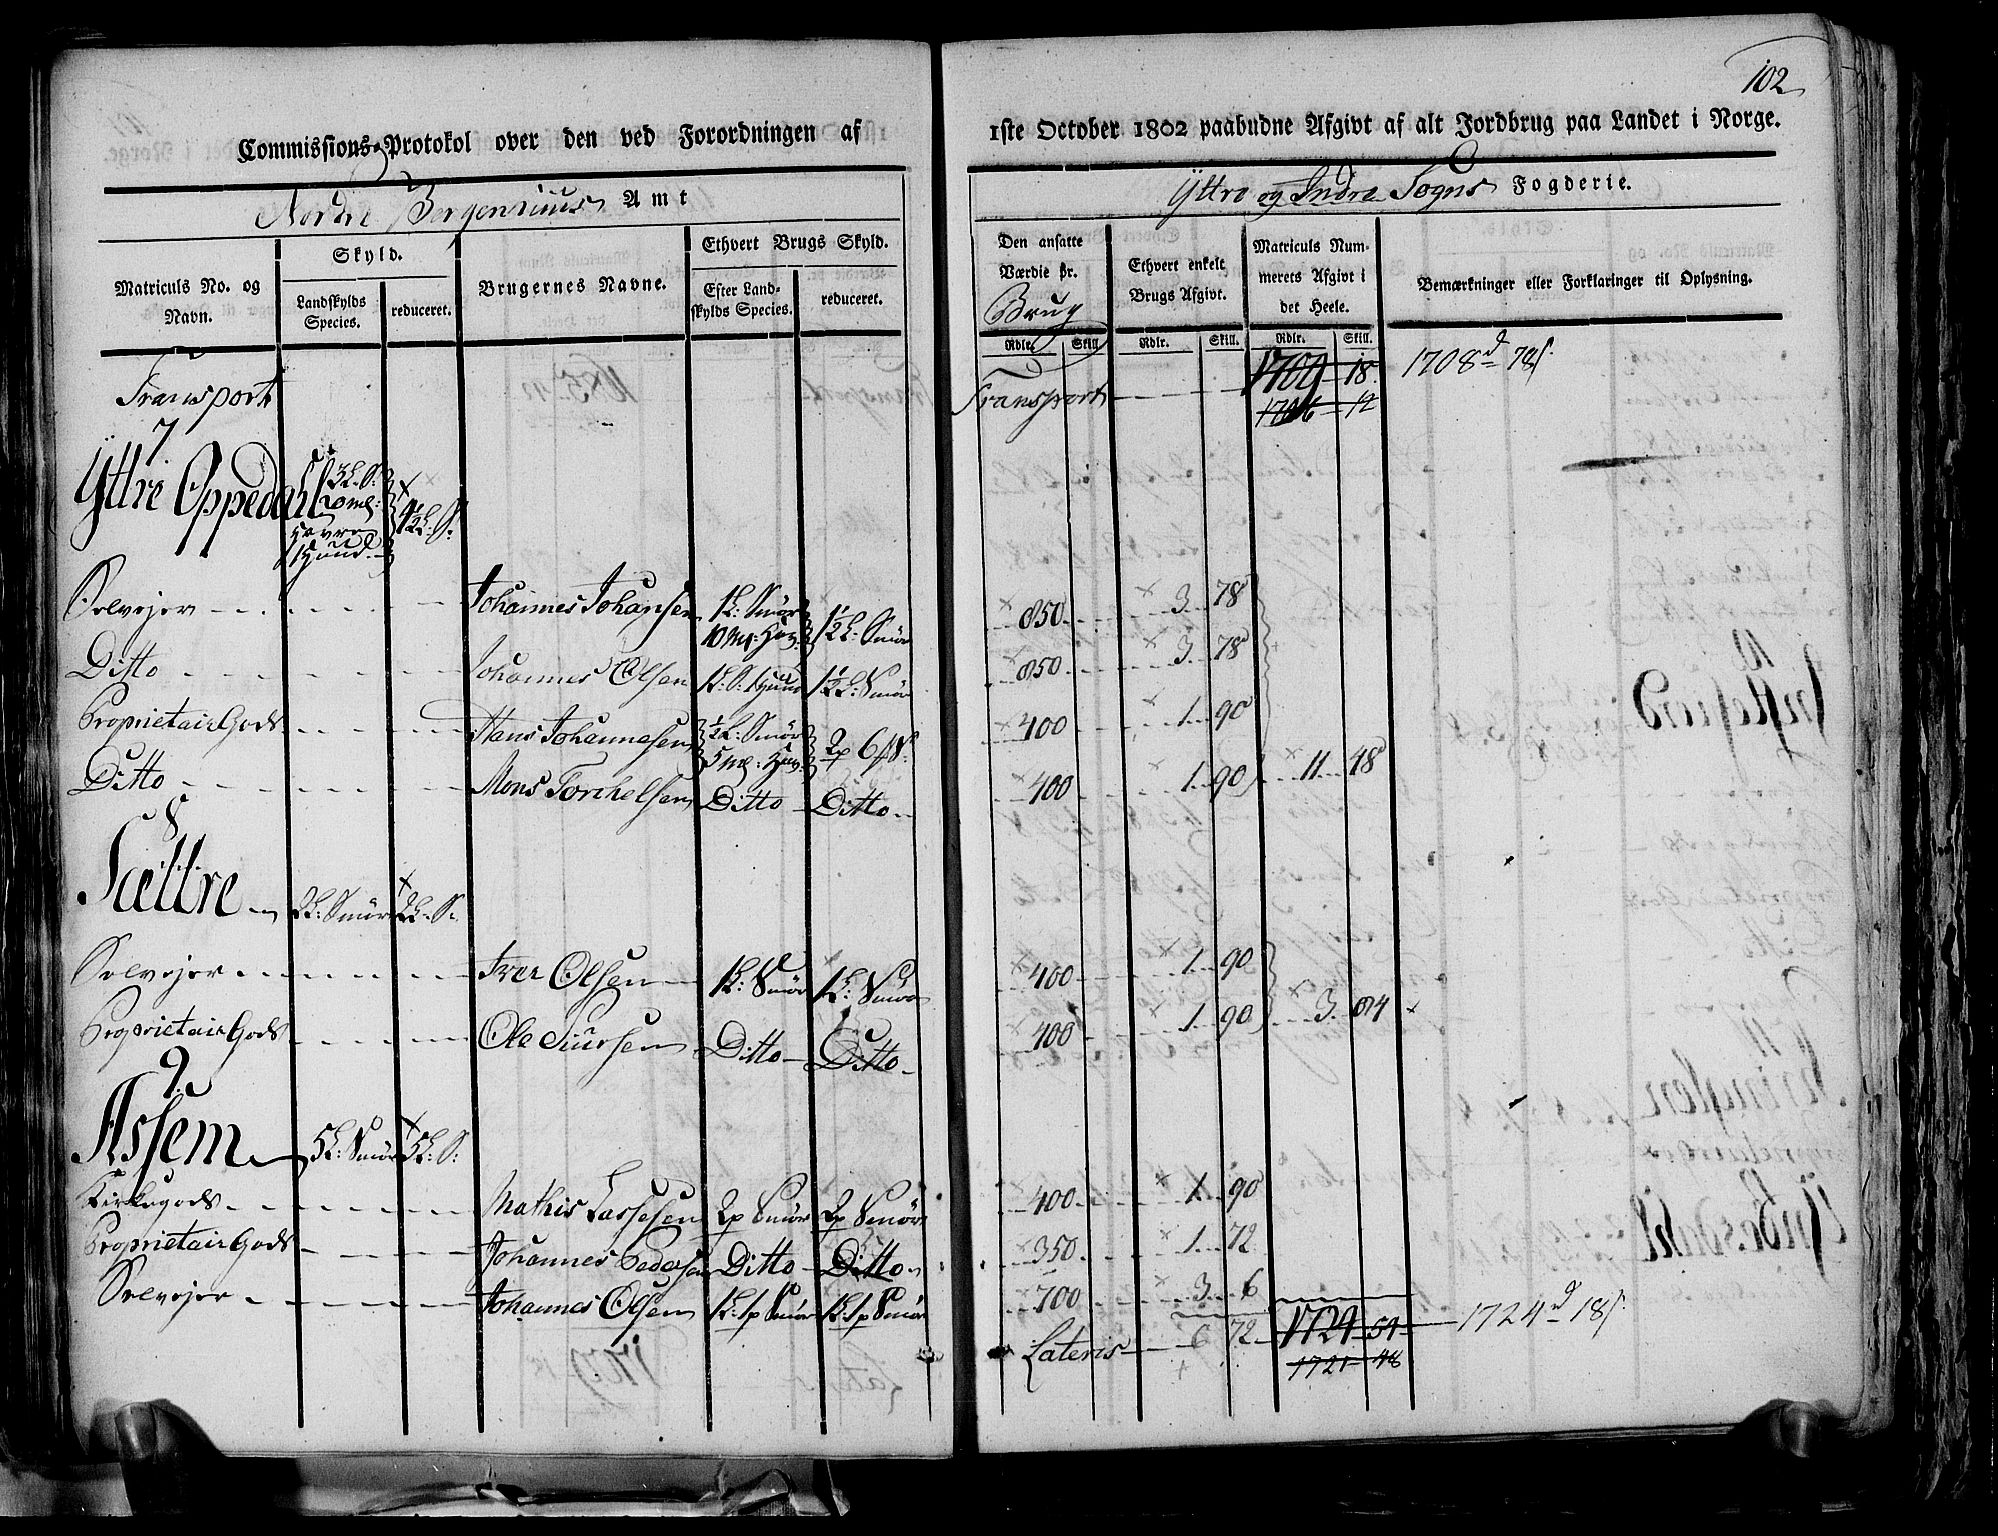 102
Commissions-Protokol over den ved Forordningen af 1ste October 1802 paabudne Afgivt af alt Jordbrug paa Landet i Norge.
Nordre Bergenhuus Amt
Yttre og Indre Sogns Fogderie.
Matriculs No. og Navn.
Skyld.
Landskylds Species.
reduceret.
Brugernes Navne.
Ethvert Brugs Skyld.
Efter Landskylds Species.
reduceret.
Den ansatte Værdie for Brug
Rdlr. Skill.
Ethvert enkelt Brugs Afgivt.
Rdlr. Skill.
Matriculs Nummerets Afgivt i det Heele.
Rdlr. Skill.
Bemærkninger eller Forklaringer til Oplysning.
Transport Transport 1709 18 1708d 78s
1706 12
7
Yttre Oppedahl 3L. S. 20 ml: Havre 1 Huud 4½L. S.
Selvejer Johannes Johansen 1L: Smör 10 ml: Hav. 1½L: Smör 850 3 78
Ditto Johannes Olsen 1L: S: 1 Huud 1½L: Smör 850 3 78
Proprietair Gods Hans Johannesen ½L: Smör 5 ml: Hav. 2p 6 400 1 90
Ditto Mons Torchelsen Ditto Ditto 400 1 90 11 48
8
Sættre 2L: Smör 2L. S:
Selvejer Iver Olsen 1L: Smör 1L: Smör 400 1 90
Proprietair Gods Ole Siursen Ditto Ditto 400 1 90 3 84
9
Assem 5L: Smör 5L: S:
Kirkegods Mathis Lassesen 2p Smör 2p Smör 400 1 90
Proprietair Gods Johannes Pedersen Ditto Ditto 350 1 72
Selvejer Johannes Olsen 1L: 1p Smör 1L: 1p Smör 700 3 6
Lateris 6 72 1724 54 1724d 18s
1721 48